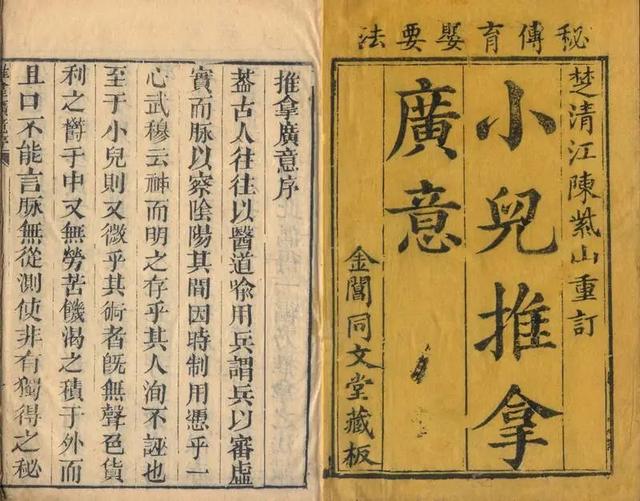 秘傳育嬰要法
楚清江陳紫山重訂
小兒推拿
廣意
金閶同文堂藏板
推拿廣意序
蓋古人往往以醫道喻用兵謂兵以審虛
實而脉以察陰陽其間因時制用憑乎一
心武穆云神而明之存乎其人洵不誣也
至于小兒則又微乎其術者旣無聲色貨
利之欝于中又無勞苦饑渴之積于外而
且口不能言脉無從測使非有獨得之秘